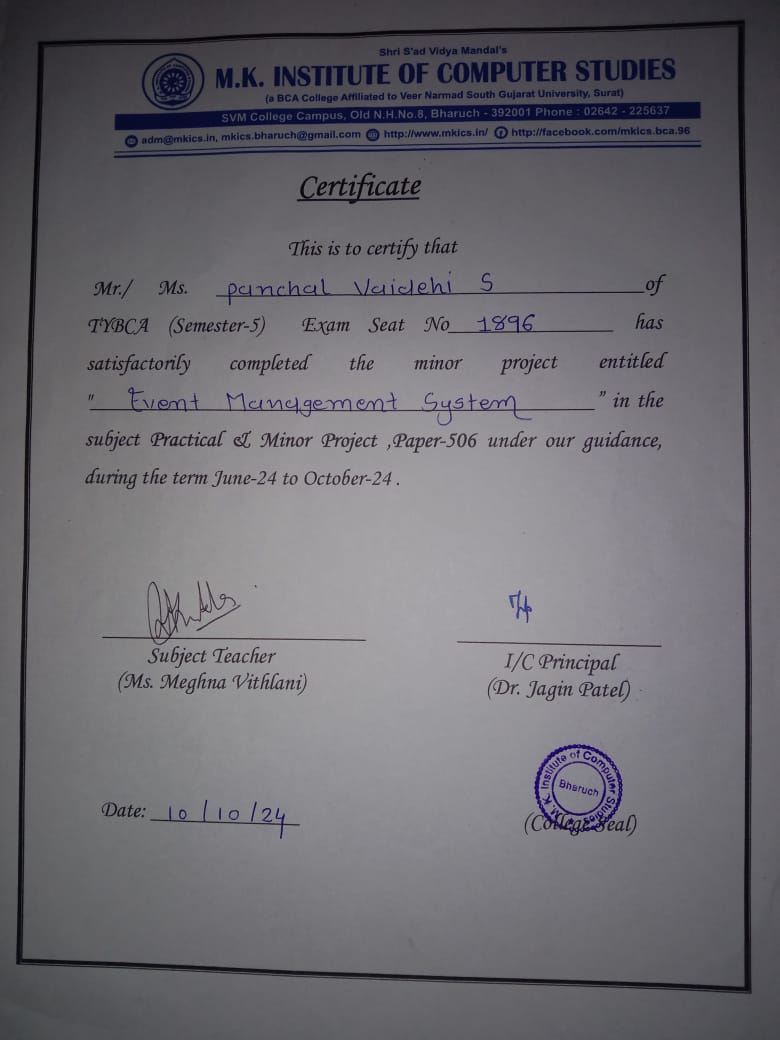 Shri S'ad Vidya Mandal's
M.K. INSTITUTE OF COMPUTER STUDIES
(a BCA College Affiliated to Veer Narmad South Gujarat University, Surat)
SVM College Campus, Old N.H.No.8, Bharuch - 392001 Phone : 02642 - 225637
adm@mkics.in, mkics.bharuch@gmail.com http://www.mkics.in/ http://facebook.com/mkics.bca.96
Certificate
This is to certify that
Mr./ Ms. Panchal Vaidehi S of
TYBCA (Semester-5) Exam Seat No 1896 has
satisfactorily completed the minor project entitled
" Event Management System " in the
subject Practical & Minor Project ,Paper-506 under our guidance,
during the term June-24 to October-24 .
Subject Teacher
(Ms. Meghna Vithlani)
I/C Principal
(Dr. Jagin Patel)
M. K. Institute of Computer Studies
Bharuch
Date: 10/10/24
(College Seal)